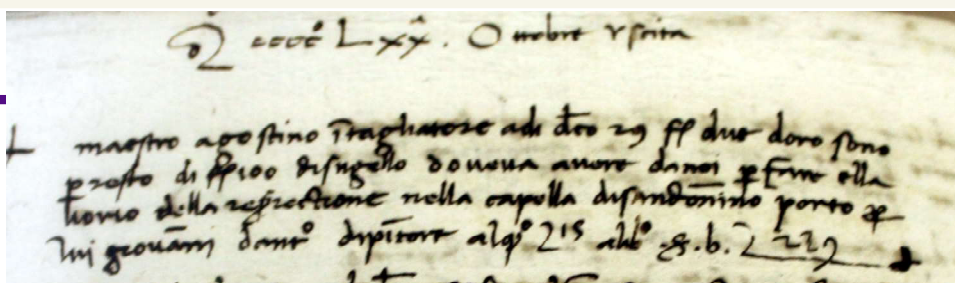 M cccc° Lxx. Ottobre Uscita
maestro agostino ītagliatore adi dco 29 ff due doro sono
p resto di ff 100 disugello doveva avere danoi p fare ella
vorio della resrectione nella capella disandonnino porto p
lui giovāni dant° dipītore alqo 215 alibo s. b. 229